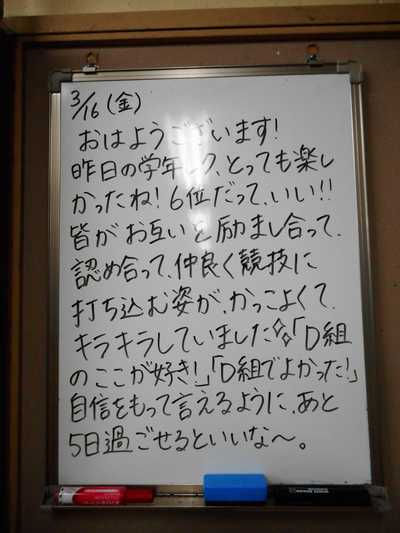 3/16(金)
おはようございます!
昨日の学年 ク、とっても楽し
かったね!6位だって、いい!!
皆がお互いを励まし合って、
認め合って、仲良く競技に
打ち込む姿が、かっこよくて、
キラキラしていました。「D組
のここが好き!」「D組でよかった!」
自信をもって言えるように、あと
5日過ごせるといいな〜。